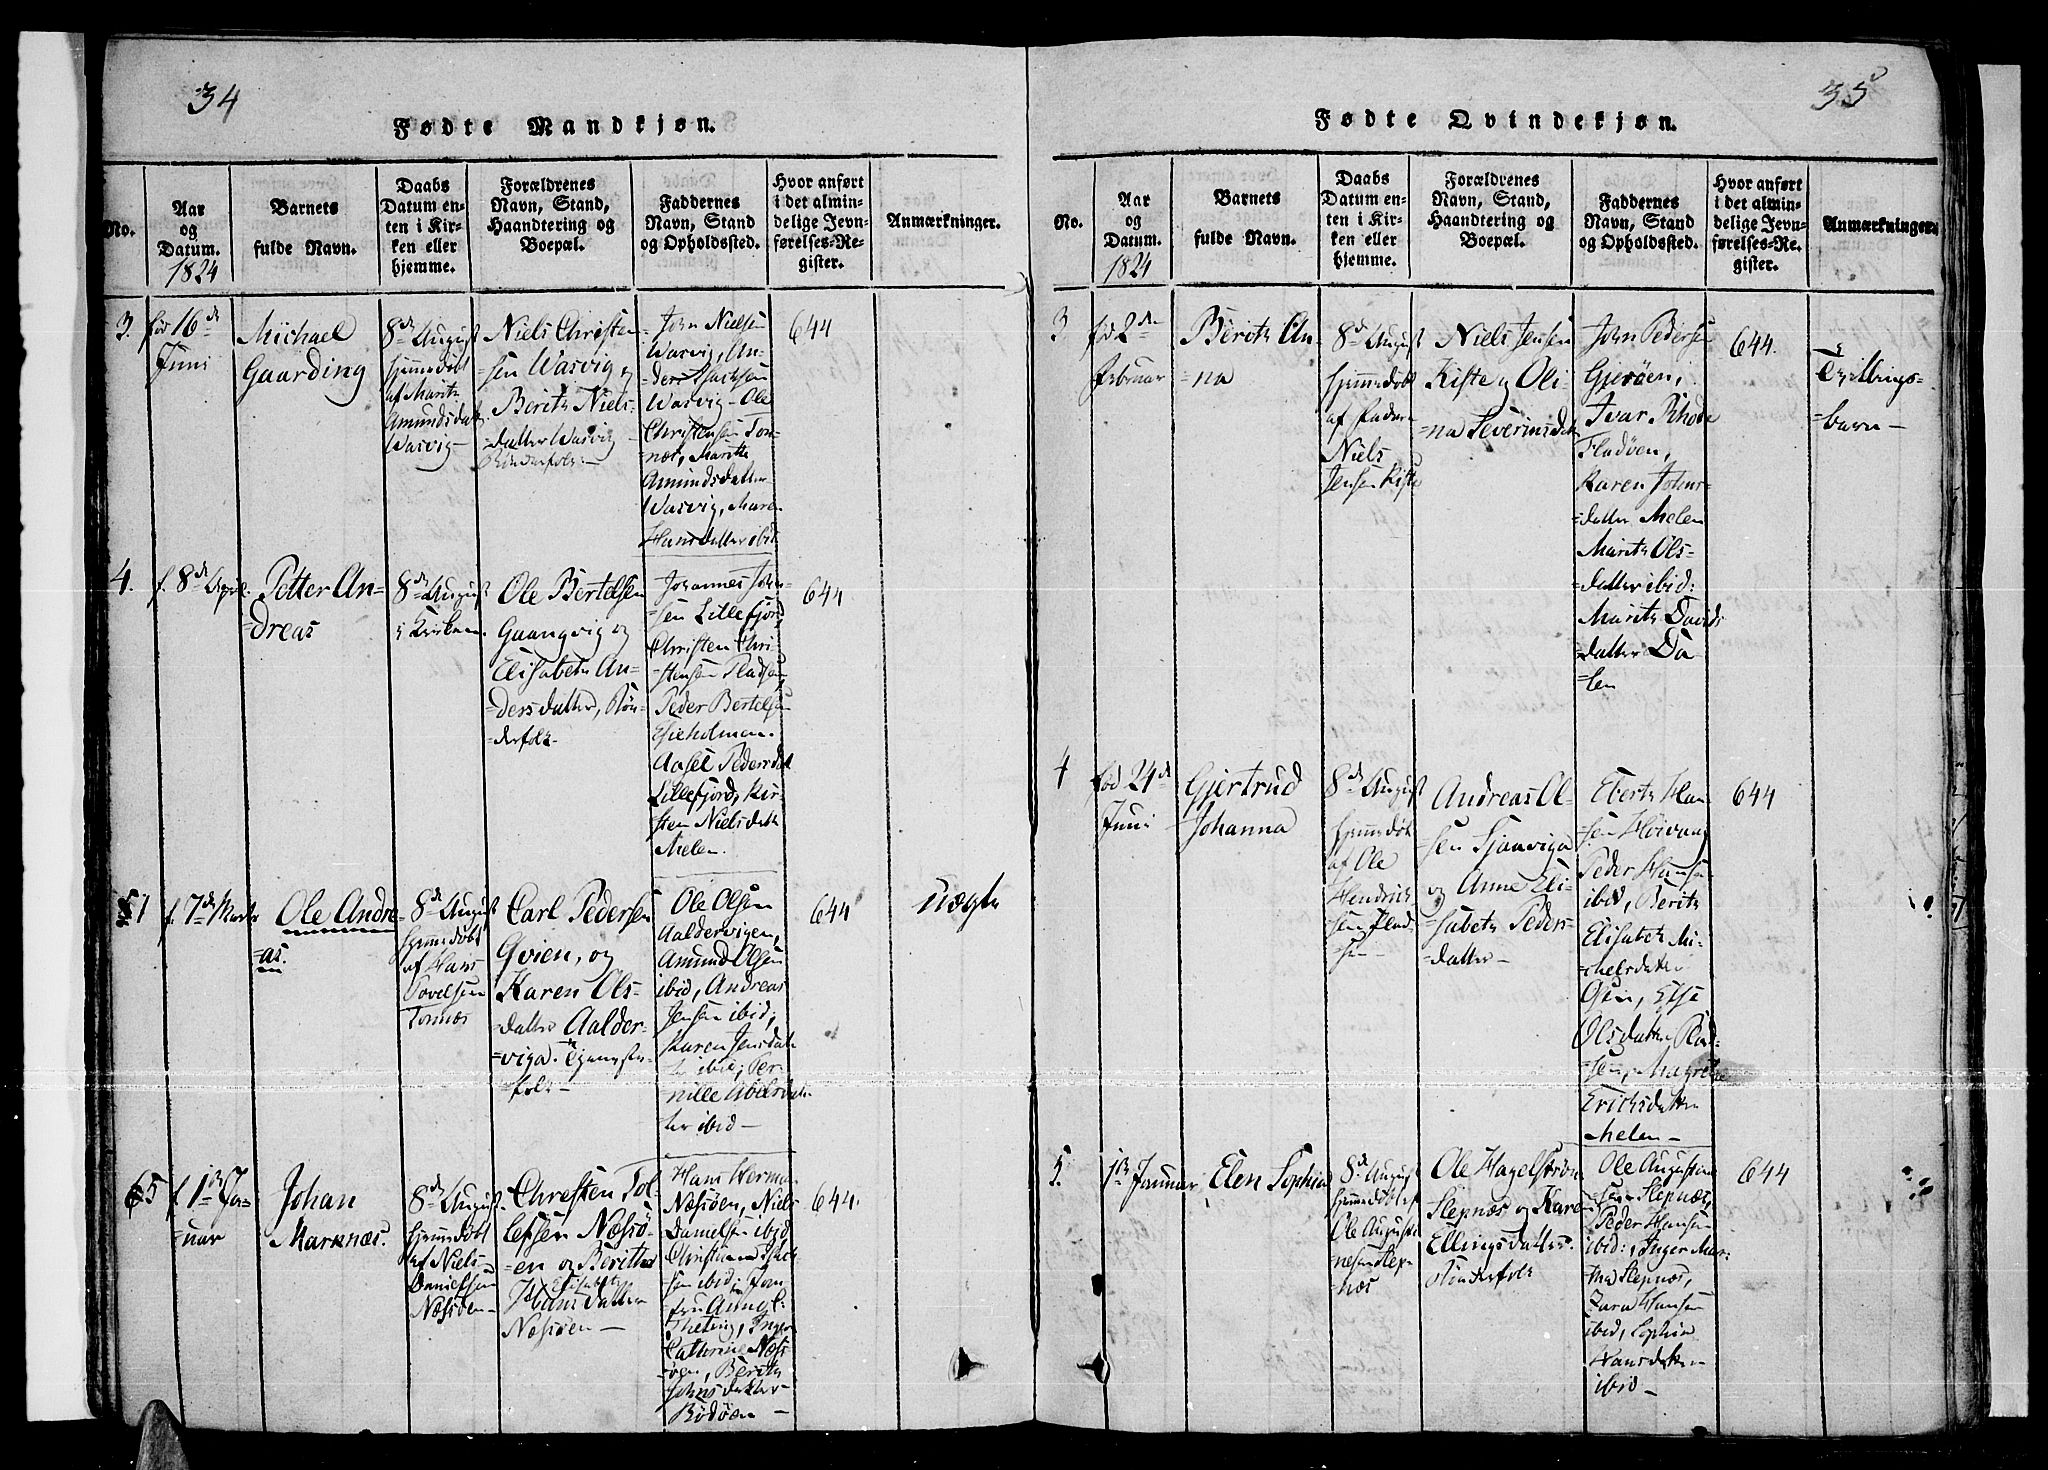 34
Fødte Mandkjøn.
No.
Aar
og
Datum.
1824
Barnets
fulde Navn.
Daabs
Datum en-
ten i Kir-
ken eller
hjemme.
Forældrenes
Navn, Stand,
Haandtering og
Boepæl.
Faddernes
Navn, Stand
og Opholdssted.
Hvor anført
i det almin-
delige Jevn-
førelses-Re-
gister.
Anmærkninger.
3.
fød 16de
Juni
Michael
Gaarding
8de August
hjemmedøbt
af Marith
Amundsdatt
Wasvig
Niels Christen-
sen Wasvig og
Berith Niels-
=datter Wasvig
Bønderfolk
John Nielsen
Wasvig, An-
ders Isachsen
Wasvig - Ole
Christensen Ton-
næs, Marith
Amundsdatter
Wasvig, Maren
Hansdatter ibid
644
4.
f. 8de April.
Petter An-
dreas
8de August
i Kirken.
Ole Bertelsen
Gaangvig og
Elisabeth An-
=dersdatter, Bøn-
=derfolk.
Johannes John-
=sen Lillefjord,
Christen Chri-
stensen Pladsen
Peder Bertelsen
Aasel Pedersdat
Lillefjord, Kir-
sten Nielsdatte
Melen.
644
51
f. 7de Marts
Ole Andre-
=as.
8de August
hjemmedøbt
af Hans
Povelsen
Tonnæs
Carl Pedersen
Qvien, og
Karen Ols-
datter Aalder-
=viga. Tjeneste-
=folk -
Ole Olsen
Aaldervigen,
Amund Olsen
ibid, Andreas
Jensen ibid,
Karen Jensdat-
ter ibid, Per-
nille Abelsdat-
ter ibid -
644
uægte
65
f. 1ste Ja-
=nuar
Johan
Marknæs.
8de August
hjemmedøbt
af Niels
Danielsen
Næsøen -
Christen Tol-
lefsen Næsø-
=en og Berith
Elisabeth
Hansdatter
Næsøen -
Hans Herman
Næsøen, Niels
Danielsen ibid
Christian Isach-
sen ibid, Jom
fru Anne
Theting, Inger
Cathrine Næs-
øen, Berith
Johnsdatter
Rødøen -
644.
35
Fødte Qvindekjøn.
No.
Aar
og
Datum.
1824
Barnets
fulde Navn.
Daabs
Datum en-
ten i Kir-
ken eller
hjemme.
Forældrenes
Navn, Stand,
Haandtering og
Boepæl.
Faddernes
Navn, Stand
og Opholdssted.
Hvor anført
i det almin-
delige Jevn-
førelses-Re-
gister.
Anmærkninger.
3
fød 2den
Februar
Berith An-
=na
8de August
hjemmedøbt
af Faderen
Niels
Jensen Kiste
Niels Jensen
Kiste og Oli-
=na Severinsdatt
John Pedersen
Gjerøen,
Ivar Rhode
Fladøen,
Karen Johns-
=datter Melen
Marith Ols-
=datter ibid:
Marith Davids
=datter Da-
=len
644.
Tvillings-
=barn -
4
fød 24de
Juni
Gjertrud
Johanna
8de August
hjemmedøbt
af Ole
Hendrich-
sen Plad-
sen -
Andreas Ol-
=sen Sjonviga
og Anne Eli-
=sabeth Peders-
=datter -
Ebert Han-
sen
Peder Hansen
ibid, Berith
Elisabeth Mi-
=chelsdatter
Elsе
Olsdatter Plad-
=sen, Magrethe
Erichsdatter
Melen -
644
5.
1ste Januar
Elen Sophia
8de August
hjemmedøbt af
Ole Augusti-
nesen Slep-
næs
Ole Hagelstrøm
Slepnæs og Karen
Ellingsdatter.
Bønderfolk
Ole Augustine-
sen Slepnæs,
Peder Hansen
ibid:, Inger Mar-
tha Slepnæs,
Zara Hansen
ibid, Sophia
Hansdatter
ibid -
644